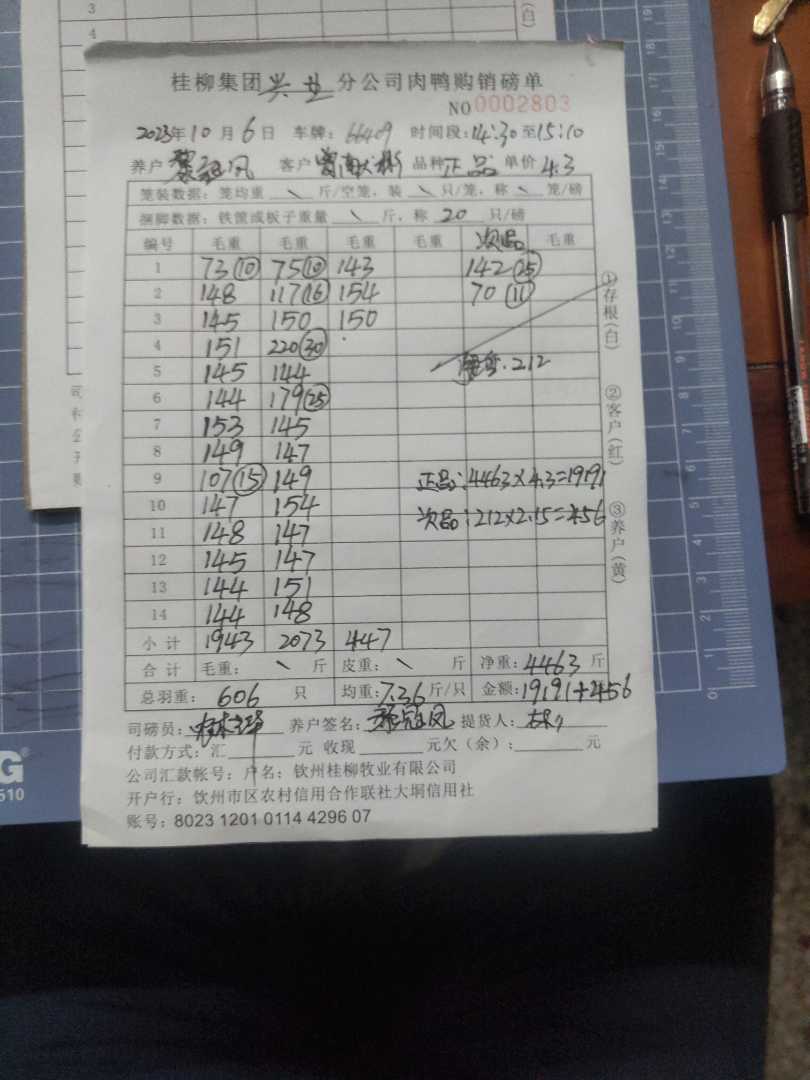 3
4
(白)
桂柳集团 兴业 分公司肉鸭购销磅单
NO 0002803
2023年10月6日 车牌: 66409 时间段:14:30至15:10
养户 客户 品种 正品 单价 4.3
笼装数据: 笼均重 \ 斤/空笼, 装 \ 只/笼, 称 \ 笼/磅
捆脚数据: 铁筐或板子重量 \ 斤, 称 20 只/磅
编号 毛重 毛重 毛重 毛重 次品 毛重
1 73⑩ 75⑩ 143 142㉕
2 148 117⑯ 154 70⑪
3 145 150 150
4 151 220㉚
5 145 144 212
6 144 179㉕
7 153 145
8 149 147
9 107⑮ 149 正品:4463×4.3=19191
10 147 154
11 148 147 次品:212×2.15=456
12 145 147
13 144 151
14 144 148
小计 1943 2073 447
合计 毛重: \ 斤 皮重: \ 斤 净重:4463 斤
总羽重: 606 只 均重:7.36 斤/只 金额:19191+456
司磅员: 养户签名: 提货人:
付款方式: 汇 元 收现 元欠(余): 元
公司汇款帐号: 户名: 钦州桂柳牧业有限公司
开户行: 钦州市区农村信用合作联社大垌信用社
账号: 8023 1201 0114 4296 07
①存根(白)
②客户(红)
③养户(黄)